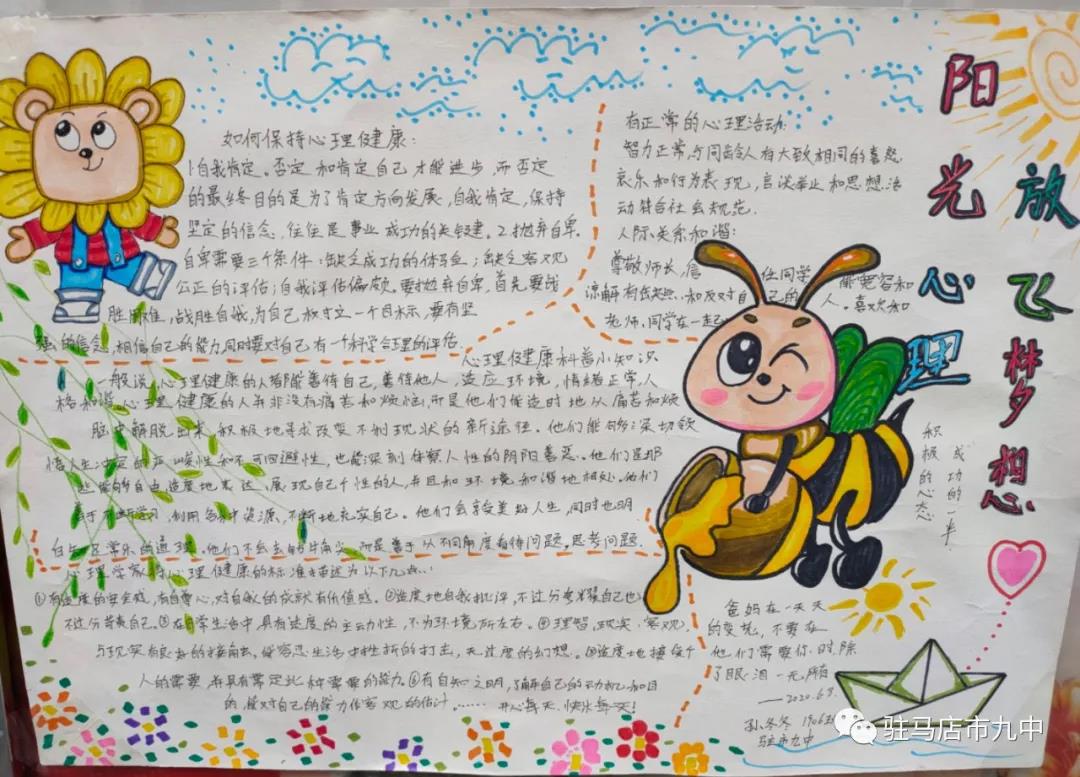 阳光心理
放飞梦想
如何保持心理健康:
1自我肯定。否定和肯定自己才能进步,而否定
的最终目的是为了肯定方向发展,自我肯定,保持
坚定的信念,往往是事业成功的关键。2.抛弃自卑.
自卑需要三个条件:缺乏成功的体验;缺乏客观
公正的评估;自我评估偏颇。要抛弃自卑,首先要战
胜困难,战胜自我,为自己树立一个目标,要有坚
强的信念,相信自己的能力,同时要对自己有一个科学合理的评估.
有正常的心理活动:
智力正常,与同龄人有大致相同的喜怒
哀乐和行为表现,言谈举止和思想活
动符合社会规范.
人际关系和谐:
尊敬师长,信任同学 能宽容和
谅解有缺点、和反对自己的人。喜欢和
老师、同学在一起
心理健康科普小知识
一般说,心理健康的人都能善待自己,善待他人,适应环境,情绪正常,人
格和谐.心理健康的人并非没有痛苦和烦恼,而是他们能适时地从痛苦和烦
脑中解脱出来,积极地寻求改变不利现状的新途径。他们能够深切领
悟人生冲突的严峻性和不可回避性,也能深刻体察人性的阴阳善恶。他们是那
些能够自由适度地表达、展现自己个性的人,并且和环境和谐地相处。他们
善于不断学习,利用各种资源,不断地充实自己。他们会享受美好人生,同时也明
白知足常乐的道理。他们不会去钻牛角尖,而是善于从不同角度看待问题。思考问题.
心理学家将心理健康的标准描述为以下几点:
①有适度的安全感,有自尊心,对自我的成就有价值感。②适度地自我批评,不过分夸耀自己也
不过分苛责自己。③在日常生活中,具有适度的主动性,不为环境所左右。④理智,现实,客观,
与现实有良好的接触,能容忍生活中挫折的打击,无过度的幻想。⑤适度地接受个
人的需要,并具有满足此种需要的能力。⑥有自知之明,了解自己的动机和目
的,能对自己的能力作客观的估计……开心每天,快乐每天!
积极的心态
成功的一半.
爸妈在一天天
的变老,不要在
他们需要你时,除
了眼泪一无所有
——2020.6.3.
孙冬冬
驻市九中
驻马店市九中